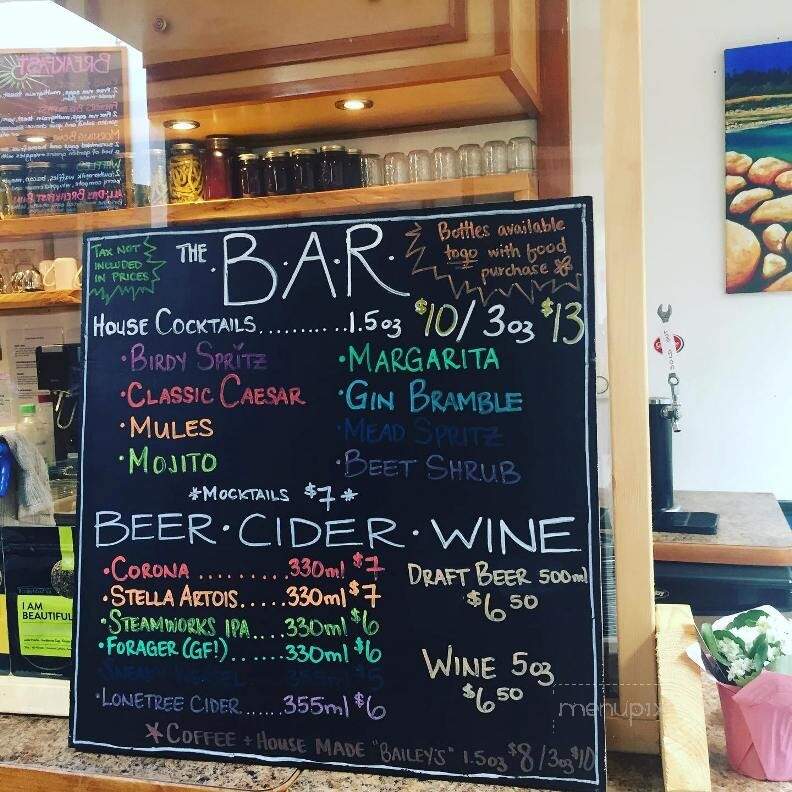 TAX NOT
INCLUDED
IN PRICES
THE B.A.R.
Bottles available
togo with food
purchase
HOUSE COCKTAILS..........1.5oz $10/3oz $13
•BIRDY SPRITZ
•CLASSIC CAESAR
•MULES
•MOJITO
•MARGARITA
•GIN BRAMBLE
•MEAD SPRITZ
•BEET SHRUB
*MOCKTAILS $7*
BEER•CIDER•WINE
•CORONA ........330ml $7
•STELLA ARTOIS.....330ml $7
•STEAMWORKS IPA....330ml $6
•FORAGER (GF!).....330ml $6
•LONETREE CIDER.....355ml $6
DRAFT BEER 500ml
$6 50
WINE 5oz
$6 50
*COFFEE + HOUSE MADE "BAILEY'S" 1.5oz $8/3oz $10
BREAKFAST
I AM
BEAUTIFUL
menupix